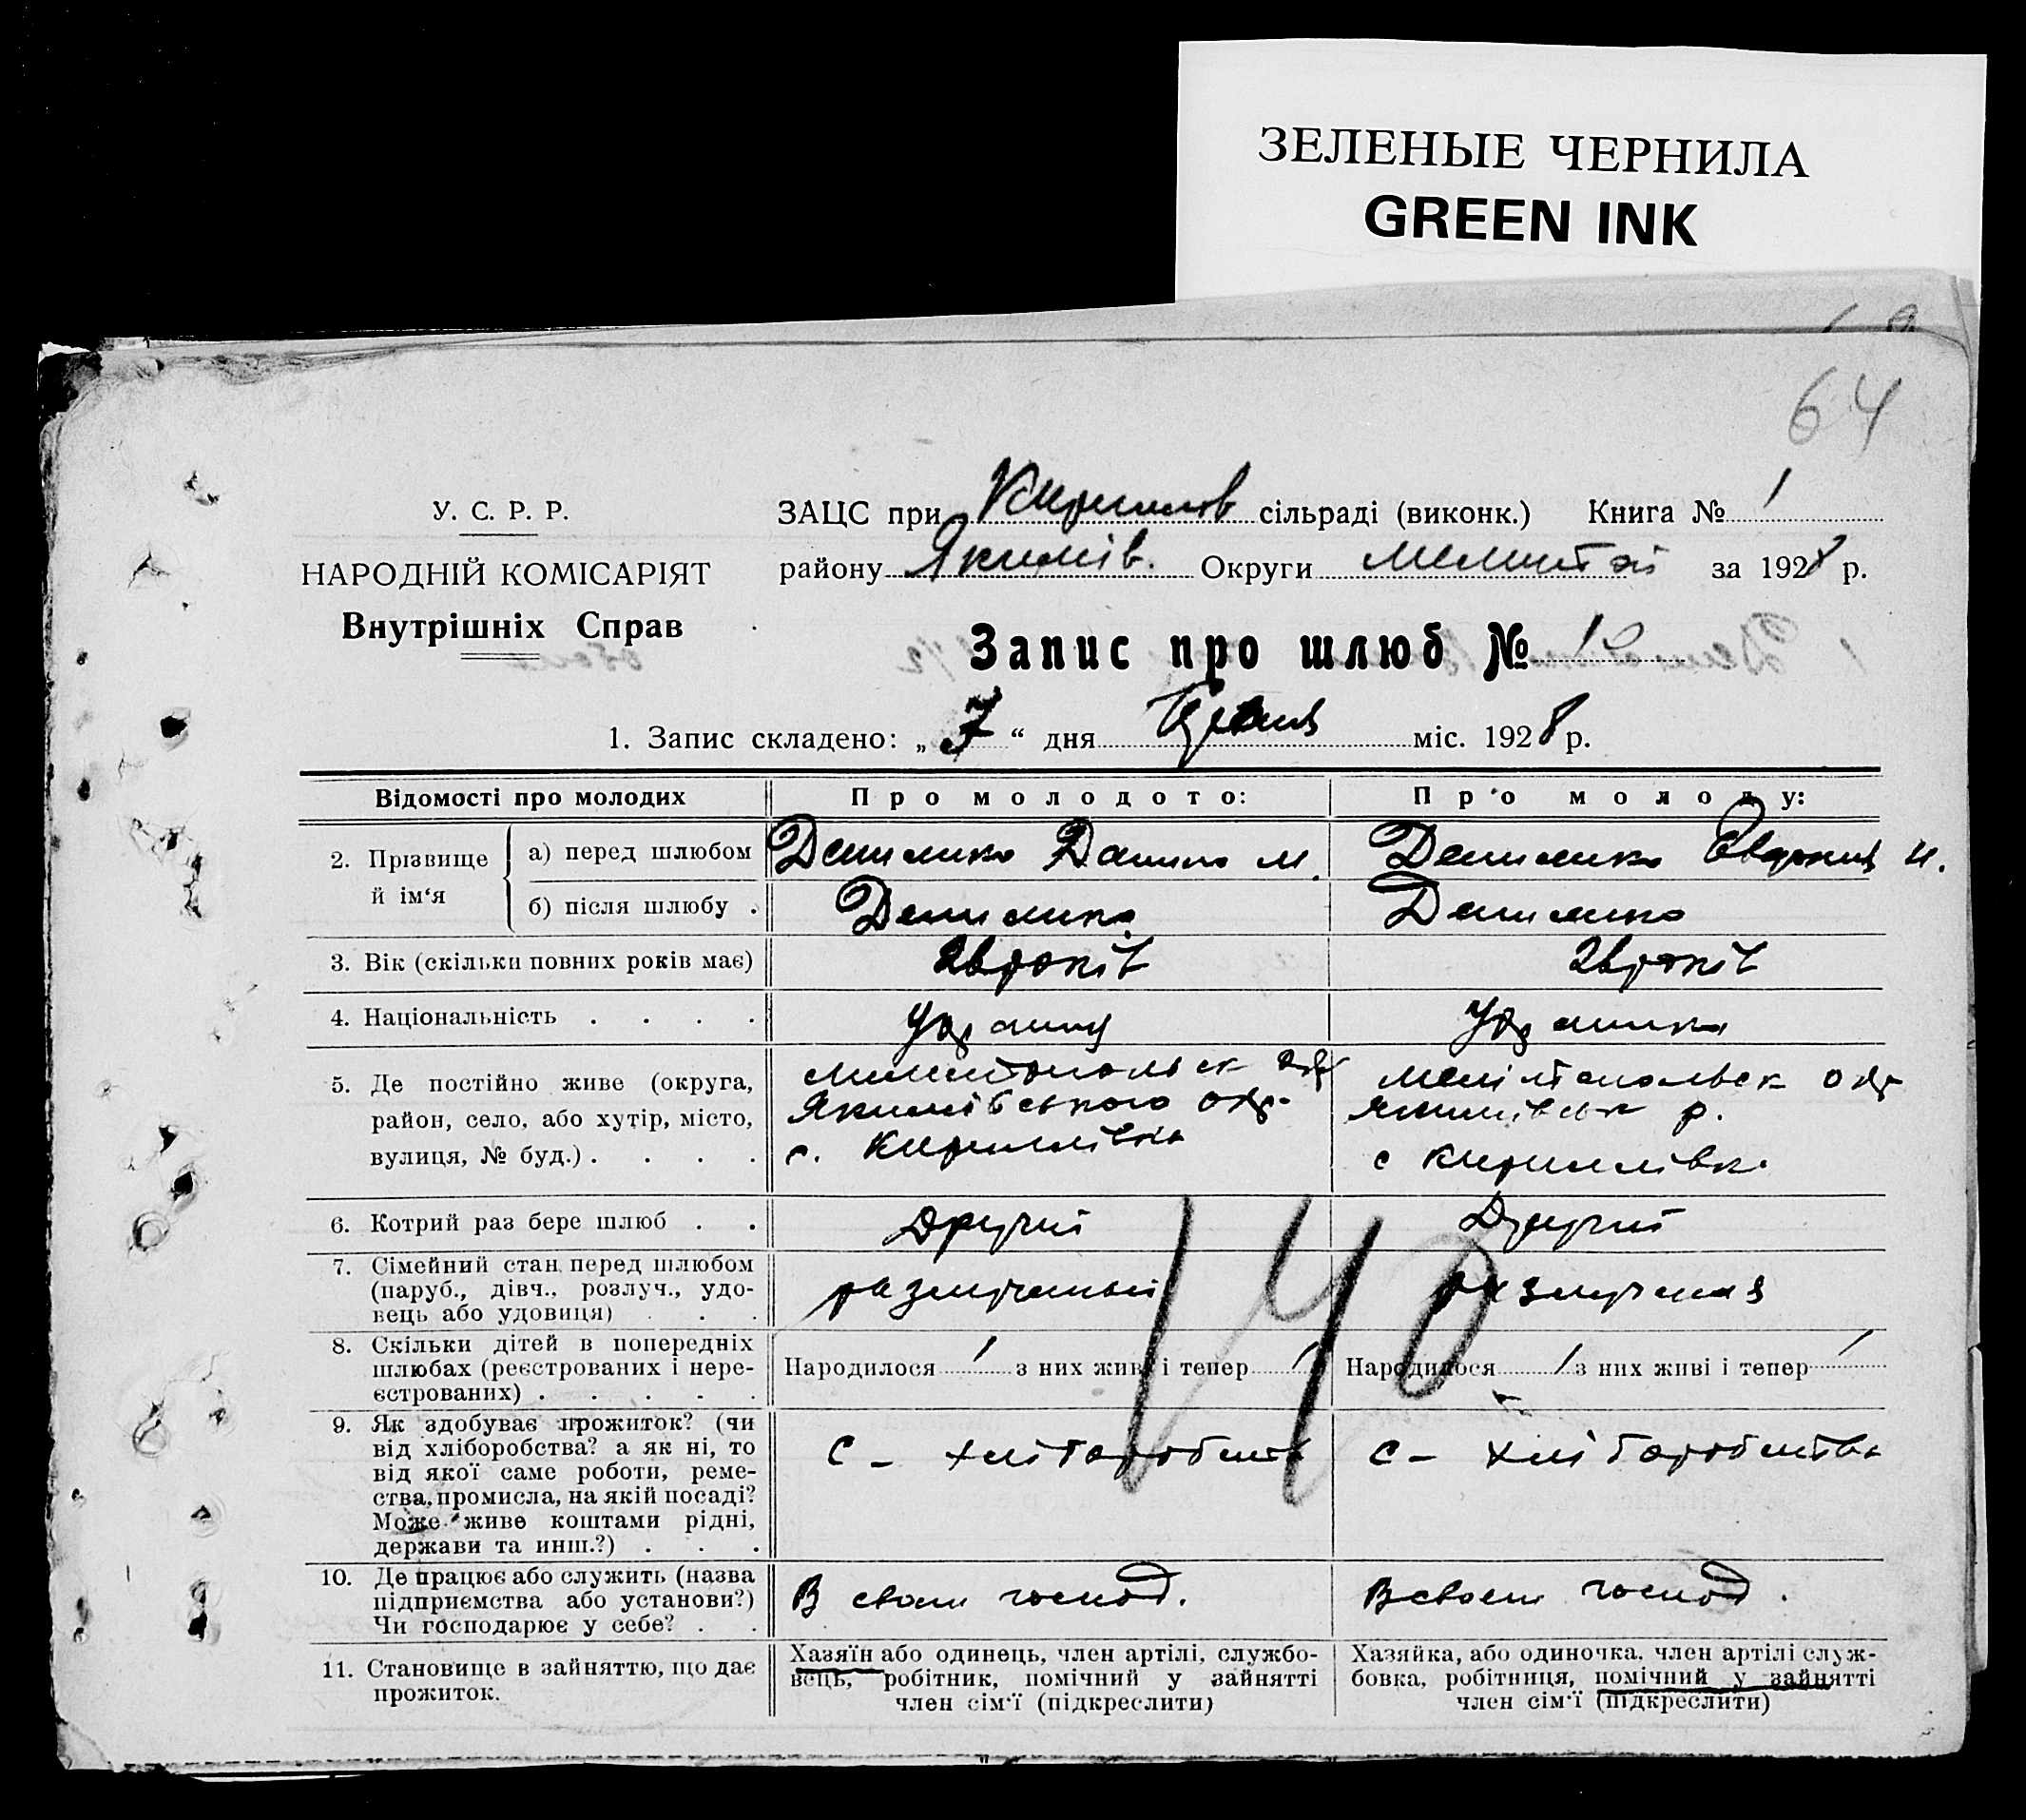 ЗЕЛЕНЫЕ ЧЕРНИЛА
GREEN INK
64
У. С. Р. Р.
НАРОДНІЙ КОМІСАРІЯТ
Внутрішніх Справ
ЗАЦС при Кирилов сільраді (виконк.) Книга № 1
району Якимів. Округи Мелітоп за 1928 р.
Запис про шлюб № 10
1. Запис складено: „7“ дня міс. 1928 р.
Відомості про молодих Про молодого: Про молоду:
2. Прізвище й ім‘я
а) перед шлюбом Данило М.
б) після шлюбу .
3. Вік (скільки повних років має) 26 років 26 років
4. Національність . . . . Українка
5. Де постійно живе (округа, район, село, або хутір, місто, вулиця, № буд.) . . . .
Мелитопольск окр Мелітопольск окр
Якимівського окр. Якимівськ р.
с. Кириллівка с Кириллівк.
6. Котрий раз бере шлюб . . Другий Другий
7. Сімейний стан перед шлюбом
(паруб., дівч., розлуч., удо-
вець або удовиця) . . .
8. Скільки дітей в попередніх
шлюбах (реєстрованих і нере-
єстрованих) . . . . .
Народилося 1 з них живі і тепер 1 Народилося 1 з них живі і тепер 1
140
9. Як здобуває прожиток? (чи
від хліборобства? а як ні, то
від якої саме роботи, реме-
ства, промисла, на якій посаді?
Може живе коштами рідні,
держави та инш.?) . . .
С – хліборобства С – хліборобства
10. Де працює або служить (назва
підприємства або установи?)
Чи господарює у себе? . .
В своем господ. В своем господ.
11. Становище в зайняттю, що дає
прожиток.
Хазяїн або одинець, член артілі, службо-
вець, робітник, помічний у зайнятті
член сім‘ї (підкреслити)
Хазяйка, або одиночка, член артілі служ-
бовка, робітниця, помічний у зайнятті
член сім‘ї (підкреслити)